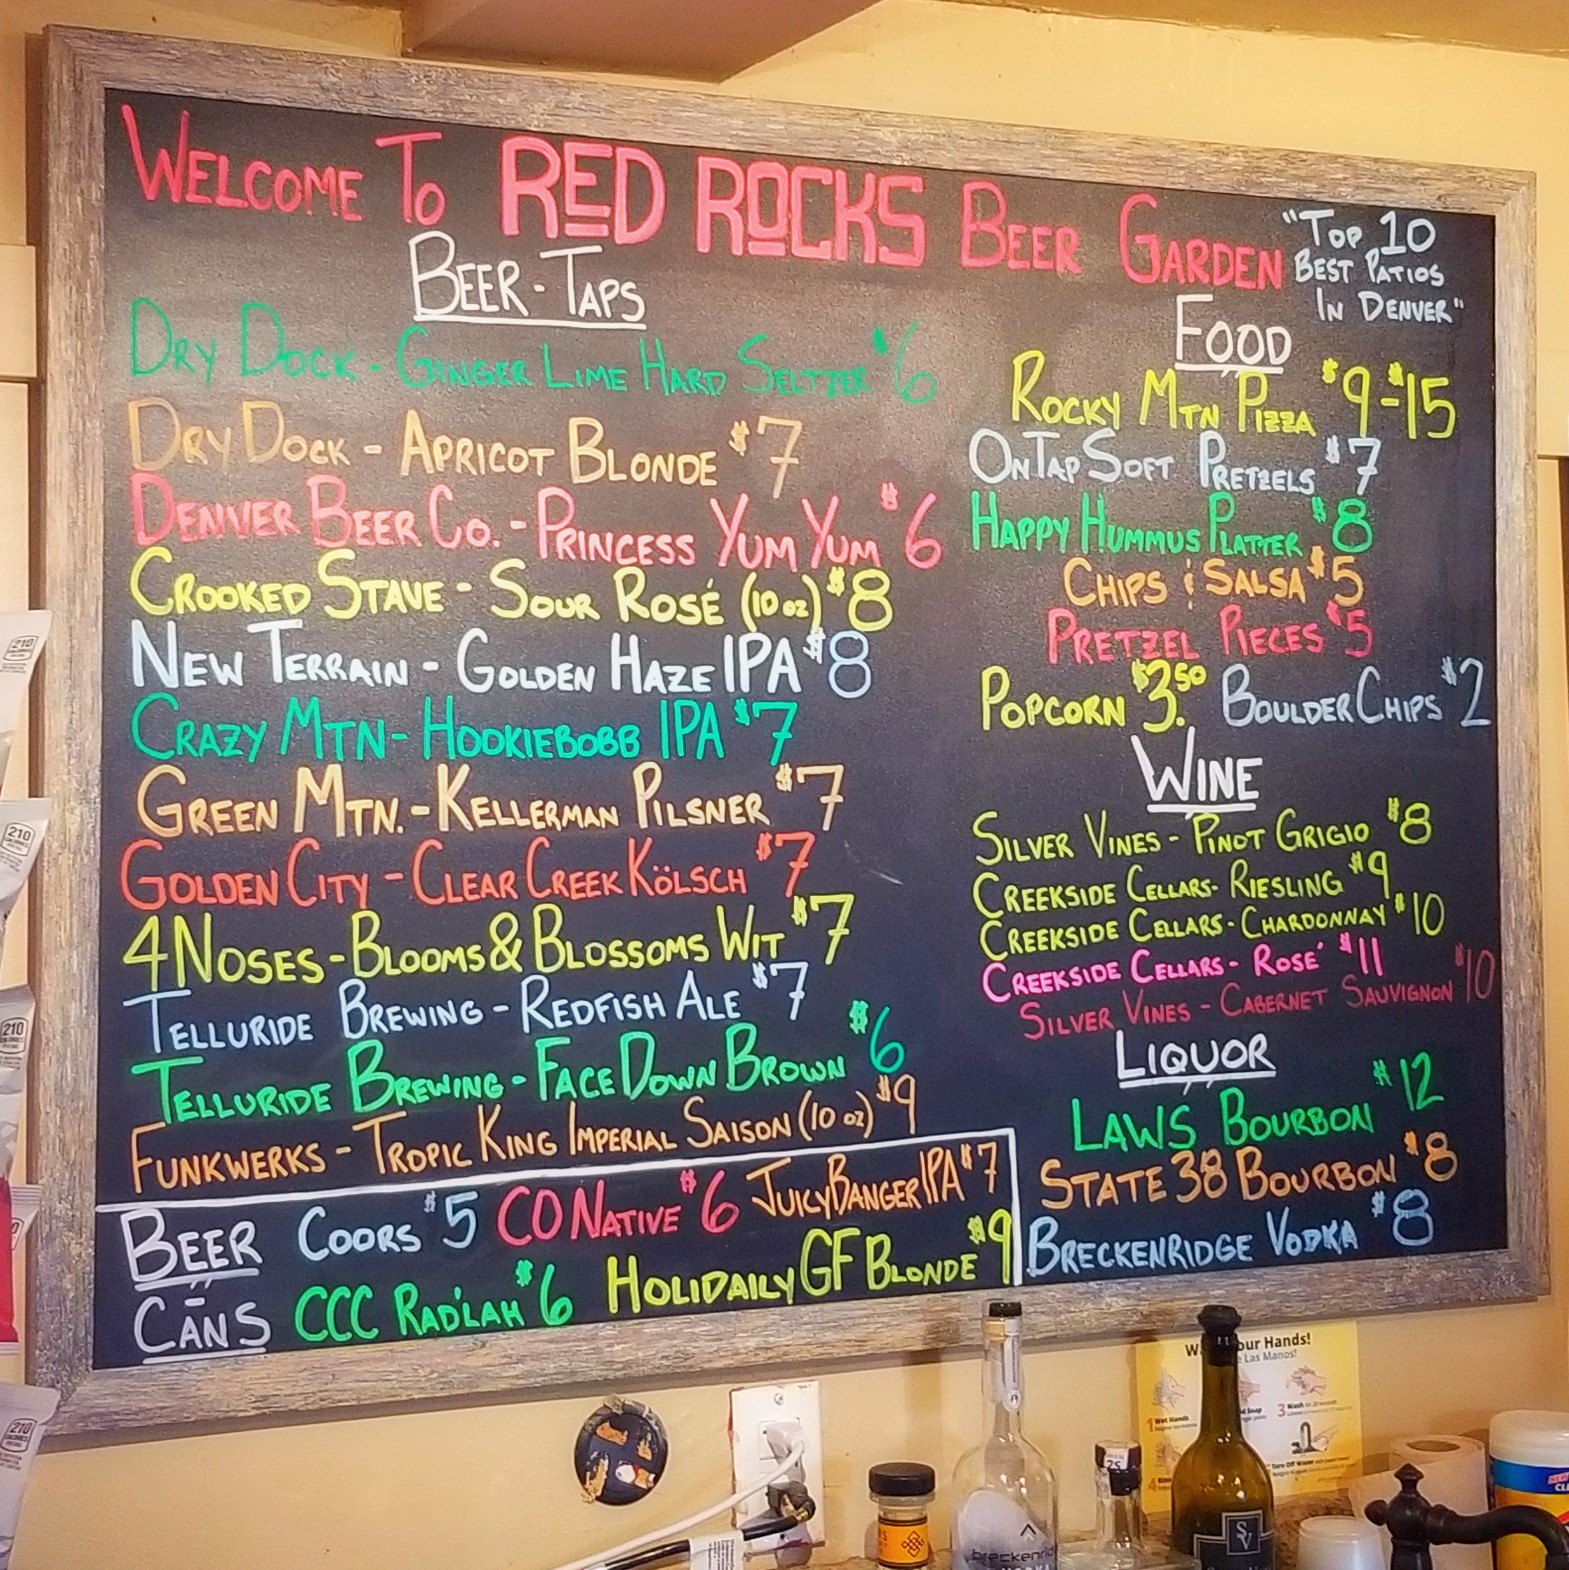 WELCOME TO RED ROCKS BEER GARDEN
"TOP 10
BEST PATIOS
IN DENVER"
BEER-TAPS
DRY DOCK - GINGER LIME HARD SELTZER $6
DRY DOCK - APRICOT BLONDE $7
DENVER BEER CO. - PRINCESS YUM YUM $6
CROOKED STAVE - SOUR ROSÉ (10 oz) $8
NEW TERRAIN - GOLDEN HAZE IPA $8
CRAZY MTN - HOOKIEBOBB IPA $7
GREEN MTN. - KELLERMAN PILSNER $7
GOLDEN CITY - CLEAR CREEK KÖLSCH $7
4 NOSES - BLOOMS & BLOSSOMS WIT $7
TELLURIDE BREWING - REDFISH ALE $7
TELLURIDE BREWING - FACE DOWN BROWN $6
FUNKWERKS - TROPIC KING IMPERIAL SAISON (10 oz) $9
BEER
CANS
COORS $5 CO NATIVE $6 JUICY BANGER IPA $7
CCC RAD'LAH $6 HOLIDAILY GF BLONDE $9
FOOD
ROCKY MTN PIZZA $9-$15
ONTAP SOFT PRETZELS $7
HAPPY HUMMUS PLATTER $8
CHIPS & SALSA $5
PRETZEL PIECES $5
POPCORN $3.50 BOULDER CHIPS $2
WINE
SILVER VINES - PINOT GRIGIO $8
CREEKSIDE CELLARS - RIESLING $9
CREEKSIDE CELLARS - CHARDONNAY $10
CREEKSIDE CELLARS - ROSÉ $11
SILVER VINES - CABERNET SAUVIGNON $10
LIQUOR
LAWS BOURBON $12
STATE 38 BOURBON $8
BRECKENRIDGE VODKA $8
210
210
210
210
our Hands!
Las Manos!
1 Wet Hands
Soap
3 Wash
Turn Off Water
4
25
SV